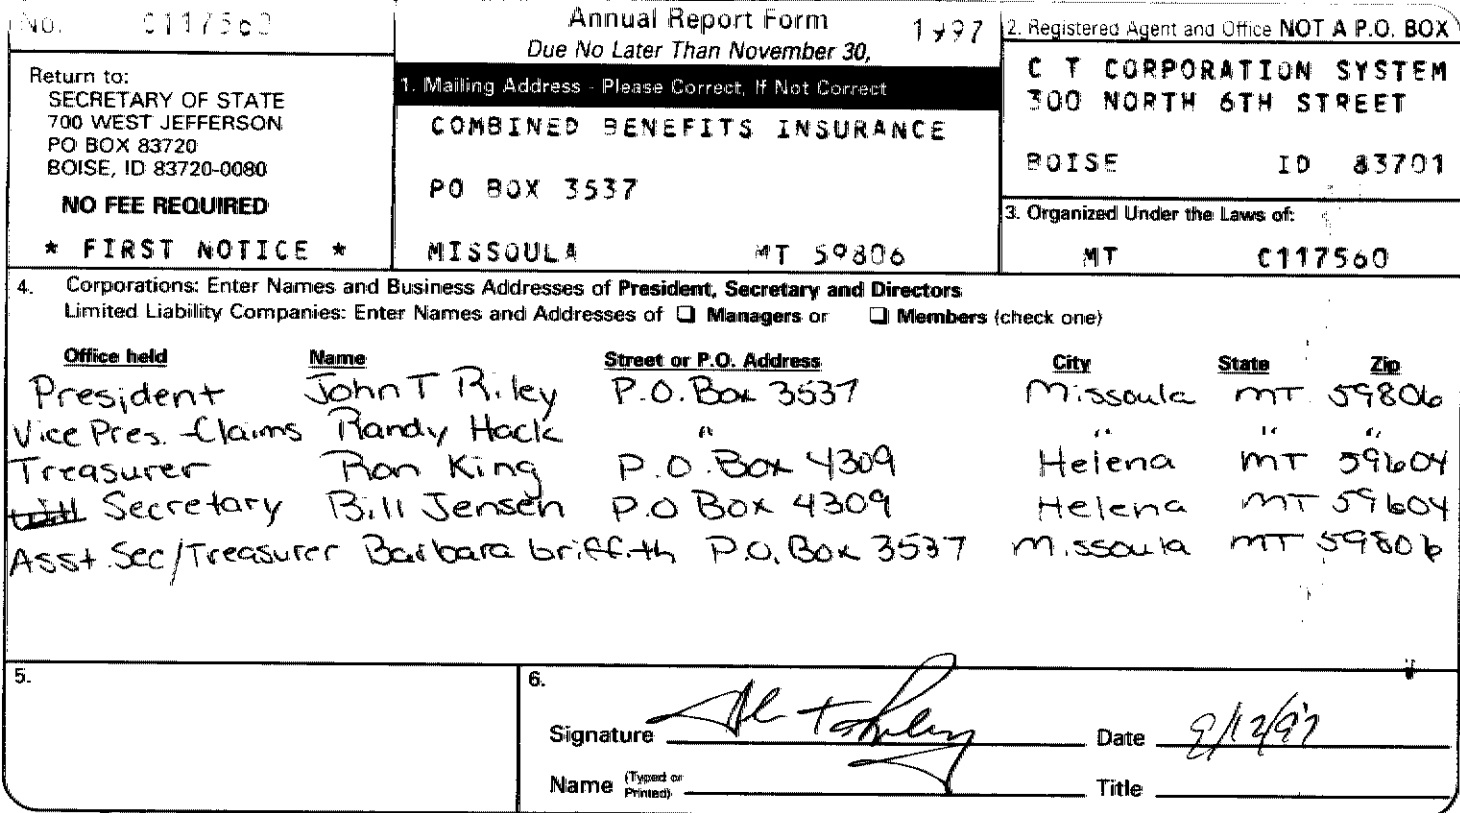 No. C117560
Annual Report Form 1997
Due No Later Than November 30,
Return to:
SECRETARY OF STATE
700 WEST JEFFERSON
PO BOX 83720
BOISE, ID 83720-0080
NO FEE REQUIRED
* FIRST NOTICE *
1. Mailing Address - Please Correct, If Not Correct
COMBINED BENEFITS INSURANCE
PO BOX 3537
MISSOULA MT 59806
2. Registered Agent and Office NOT A P.O. BOX
C T CORPORATION SYSTEM
300 NORTH 6TH STREET
BOISE ID 83701
3. Organized Under the Laws of:
MT C117560
4. Corporations: Enter Names and Business Addresses of President, Secretary and Directors
Limited Liability Companies: Enter Names and Addresses of ❑ Managers or ❑ Members (check one)
Office held Name Street or P.O. Address City State Zip
President John T Riley P.O. Box 3537 Missoula MT 59806
Vice Pres. -Claims Randy Hack " " " "
Treasurer Ron King P.O. Box 4309 Helena MT 59604
Secretary Bill Jensen P.O Box 4309 Helena MT 59604
Asst. Sec/Treasurer Barbara Griffith P.O. Box 3537 Missoula MT 59806
5.
6.
Signature Date 9/12/97
Name (Typed or Printed) Title